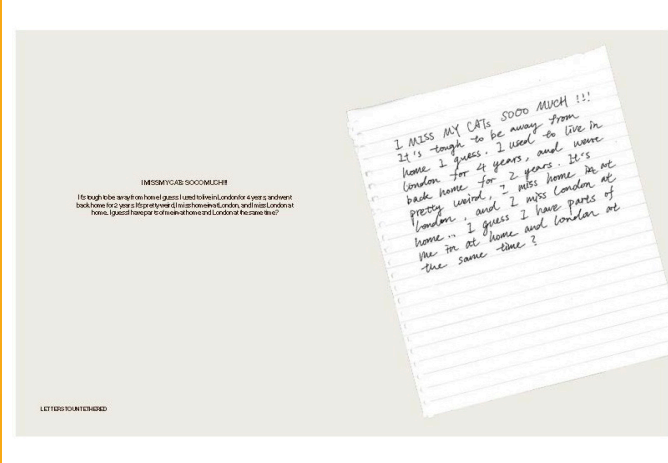 I MISS MY CATS SOOO MUCH !!!
It's tough to be away from home I guess. I used to live in London for 4 years, and went
back home for 2 years. It's pretty weird, I miss home in at London, and I miss London at
home. I guess I have parts of me in at home and London at the same time?
LETTERS TO UNTETHERED
I MISS MY CATS SOOO MUCH !!!
It's tough to be away from
home I guess. I used to live in
London for 4 years, and went
back home for 2 years. It's
pretty weird, I miss home in at
London, and I miss London at
home.. I guess I have parts of
me in at home and London at
the same time?